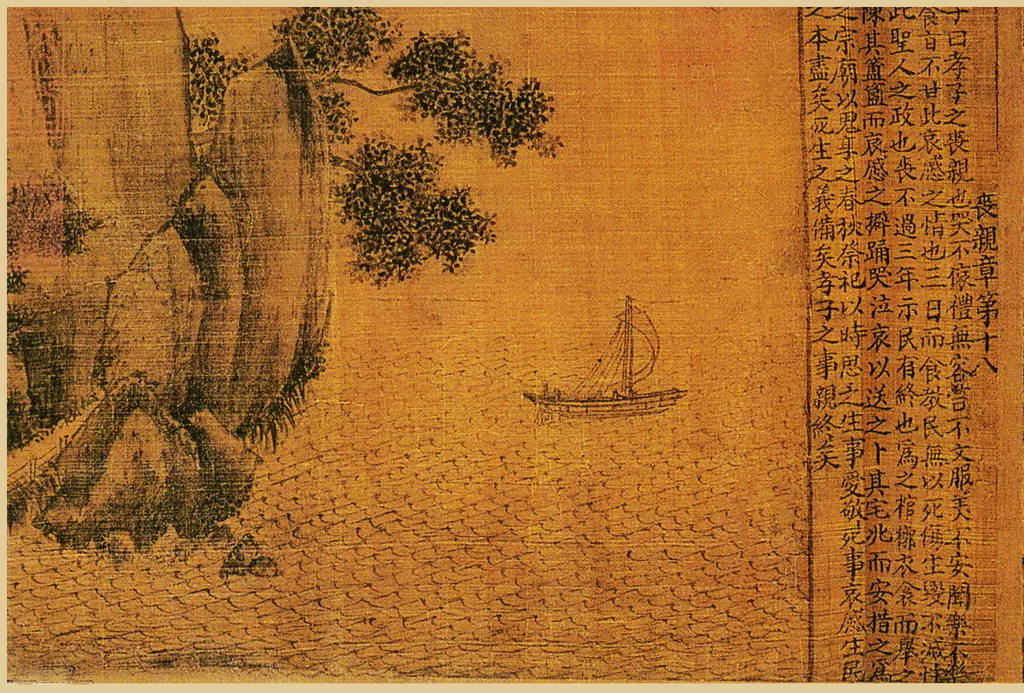 喪親章第十八
子曰孝子之喪親也哭不偯禮無容言不文服美不安聞樂不樂
食旨不甘此哀慼之情也三日而食教民無以死傷生毀不滅性
此聖人之政也喪不過三年示民有終也為之棺槨衣衾而舉之
陳其簠簋而哀慼之擗踊哭泣哀以送之卜其宅兆而安措之為
之宗廟以鬼享之春秋祭祀以時思之生事愛敬死事哀慼生民
之本盡矣死生之義備矣孝子之事親終矣